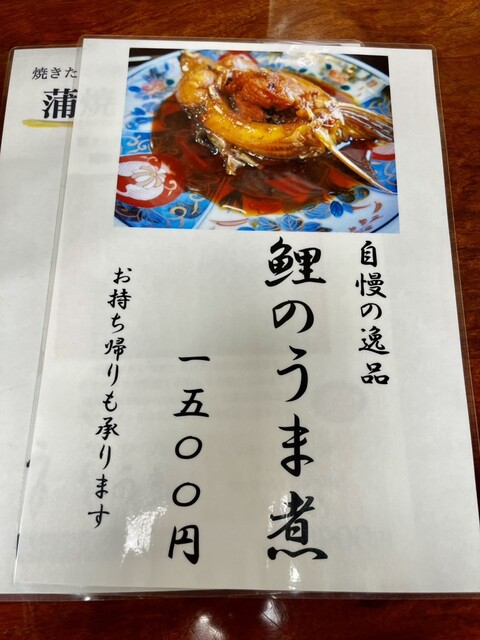 自慢の逸品
鯉のうま煮
一五〇〇円
お持ち帰りも承ります
焼きた
蒲